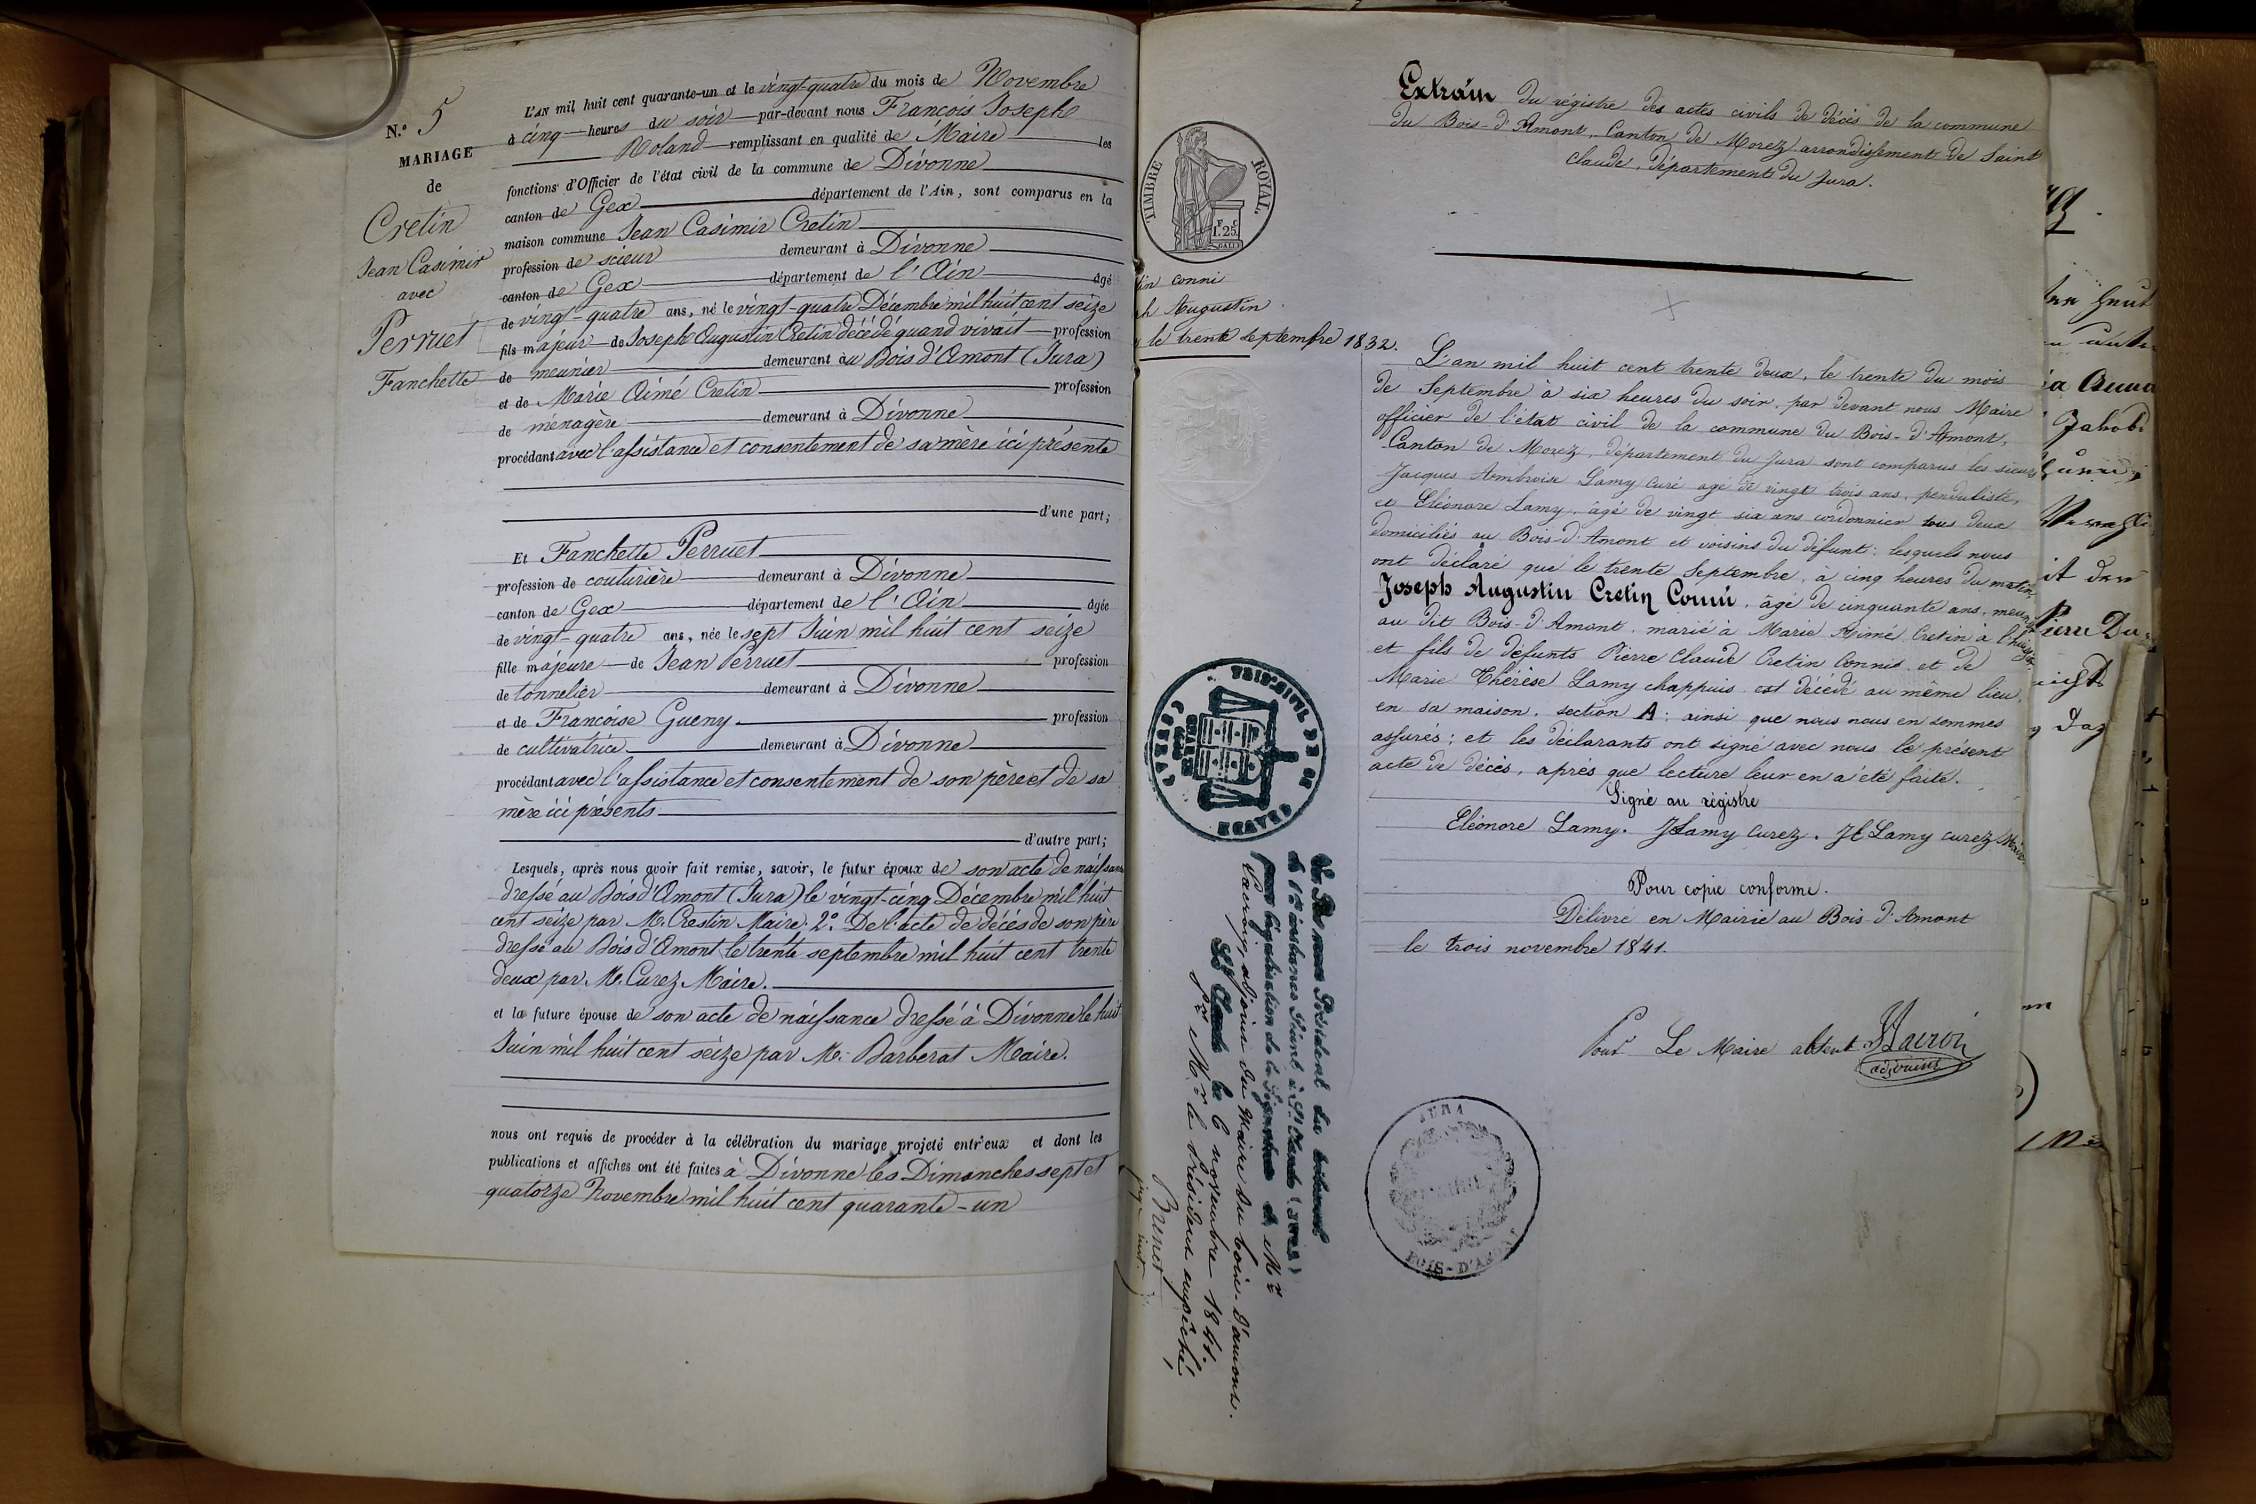 N.° 5
MARIAGE
de
Cretin
Jean Casimir
avec
Perruet
Fanchette
L'AN mil huit cent quarante-un et le vingt-quatre du mois de Novembre
à cinq heures du soir par-devant nous François Joseph
Roland remplissant en qualité de Maire les
fonctions d'Officier de l'état civil de la commune de Divonne
canton de Gex département de l'Ain, sont comparus en la
maison commune Jean Casimir Cretin
profession de scieur demeurant à Divonne
canton de Gex département de l'Ain âgé
de vingt-quatre ans, né le vingt-quatre Décembre mil huit cent seize
fils majeur de Joseph Augustin Cretin décédé quand vivait profession
de meunier demeurant au Bois d'Amont (Jura)
et de Marie Aimé Cretin profession
de ménagère demeurant à Divonne
procédant avec l'assistance et consentement de sa mère ici présente
d'une part;
Et Fanchette Perruet
profession de couturière demeurant à Divonne
canton de Gex département de l'Ain âgée
de vingt-quatre ans, née le sept Juin mil huit cent seize
fille majeure de Jean Perruet profession
de tonnelier demeurant à Divonne
et de Françoise Gueny profession
de cultivatrice demeurant à Divonne
procédant avec l'assistance et consentement de son père et de sa
mère ici présents
d'autre part;
Lesquels, après nous avoir fait remise, savoir, le futur époux de son acte de naissance
dressé au Bois d'Amont (Jura) le vingt-cinq Décembre mil huit
cent seize par Mr. Crestin Maire; 2.° De l'acte de décés de son père
dressé au Bois d'Amont le trente septembre mil huit cent trente
deux par Mr. Curez Maire.
et la future épouse de son acte de naissance dressé à Divonne le huit
Juin mil huit cent seize par Mr. Barberat Maire.
nous ont requis de procéder à la célébration du mariage projeté entr'eux et dont les
publications et affiches ont été faites à Divonne les Dimanches sept et
quatorze Novembre mil huit cent quarante-un
TIMBRE ROYAL
F. C.
1.25
tin conni
h Augustin
le trente septembre 1832.
Extrain du régistre des actes civils de décés de la commune
du Bois-d'Amont, Canton de Morez arrondissement de Saint
Claude, département du Jura.
L'an mil huit cent trente deux, le trente du mois
de Septembre à six heures du soir, par devant nous Maire
officier de l'état civil de la commune du Bois-d'Amont,
Canton de Morez, département du Jura sont comparus les sieurs
Jacques Ambroise Lamy Curé agé de vingt trois ans, penduliste,
et Eléonore Lamy, âgé de vingt six ans cordonnier tous deux
domiciliés au Bois-d'Amont et voisins du défunt: lesquels nous
ont déclaré que le trente Septembre, à cinq heures du matin,
Joseph Augustin Cretin Conni, âgé de cinquante ans, meunier
au dit Bois-d'Amont, marié à Marie Aimé Cretin à l'huissier
et fils de defunts Pierre Claude Cretin Connis et de
Marie Thérèse Lamy chappuis est décédé au même lieu,
en sa maison, section A: ainsi que nous nous en sommes
assurés; et les déclarants ont signé avec nous le présent
acte de décès, après que lecture leur en a été faite.
Signé au régistre
Eléonore Lamy. JLamy Curez. Jt Lamy curez Maire
Pour copie conforme.
Délivré en Mairie au Bois-d'Amont
le trois novembre 1841.
Pour Le Maire absent
adjoint
JURA
BOIS-D'AMONT
Vu Par nous Président du tribunal
de 1re instance séant à St Claude (JURA)
pour Légalisation de la Signature de Mr
Lacroix, adjoint du Maire du bois-d'amont.
St Claude le 6 novembre 1841.
Pr Mr le Président empêché,
Brenet
juge inst.